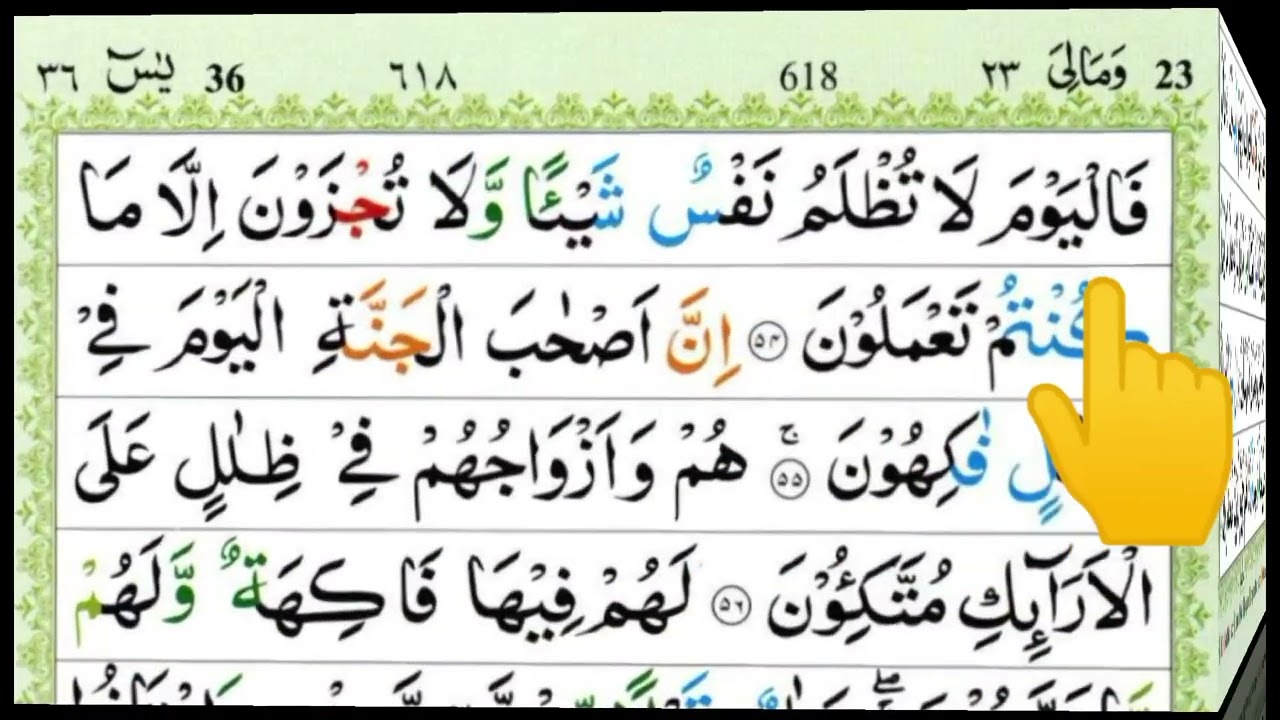 23 وَمَالِیَ ٢٣ 618 ٦١٨ 36 يٰسٓ ٣٦
فَالْيَوْمَ لَا تُظْلَمُ نَفْسٌ شَيْـًٔا وَّلَا تُجْزَوْنَ اِلَّا مَا
كُنْتُمْ تَعْمَلُوْنَ ۵۴ اِنَّ اَصْحٰبَ الْجَنَّةِ الْيَوْمَ فِيْ
فٰكِهُوْنَ ۚ ۵۵ هُمْ وَاَزْوَاجُهُمْ فِيْ ظِلٰلٍ عَلَى
الْاَرَآىِٕكِ مُتَّكِـُٔوْنَ ۵۶ لَهُمْ فِيْهَا فَاكِهَةٌ وَّلَهُمْ